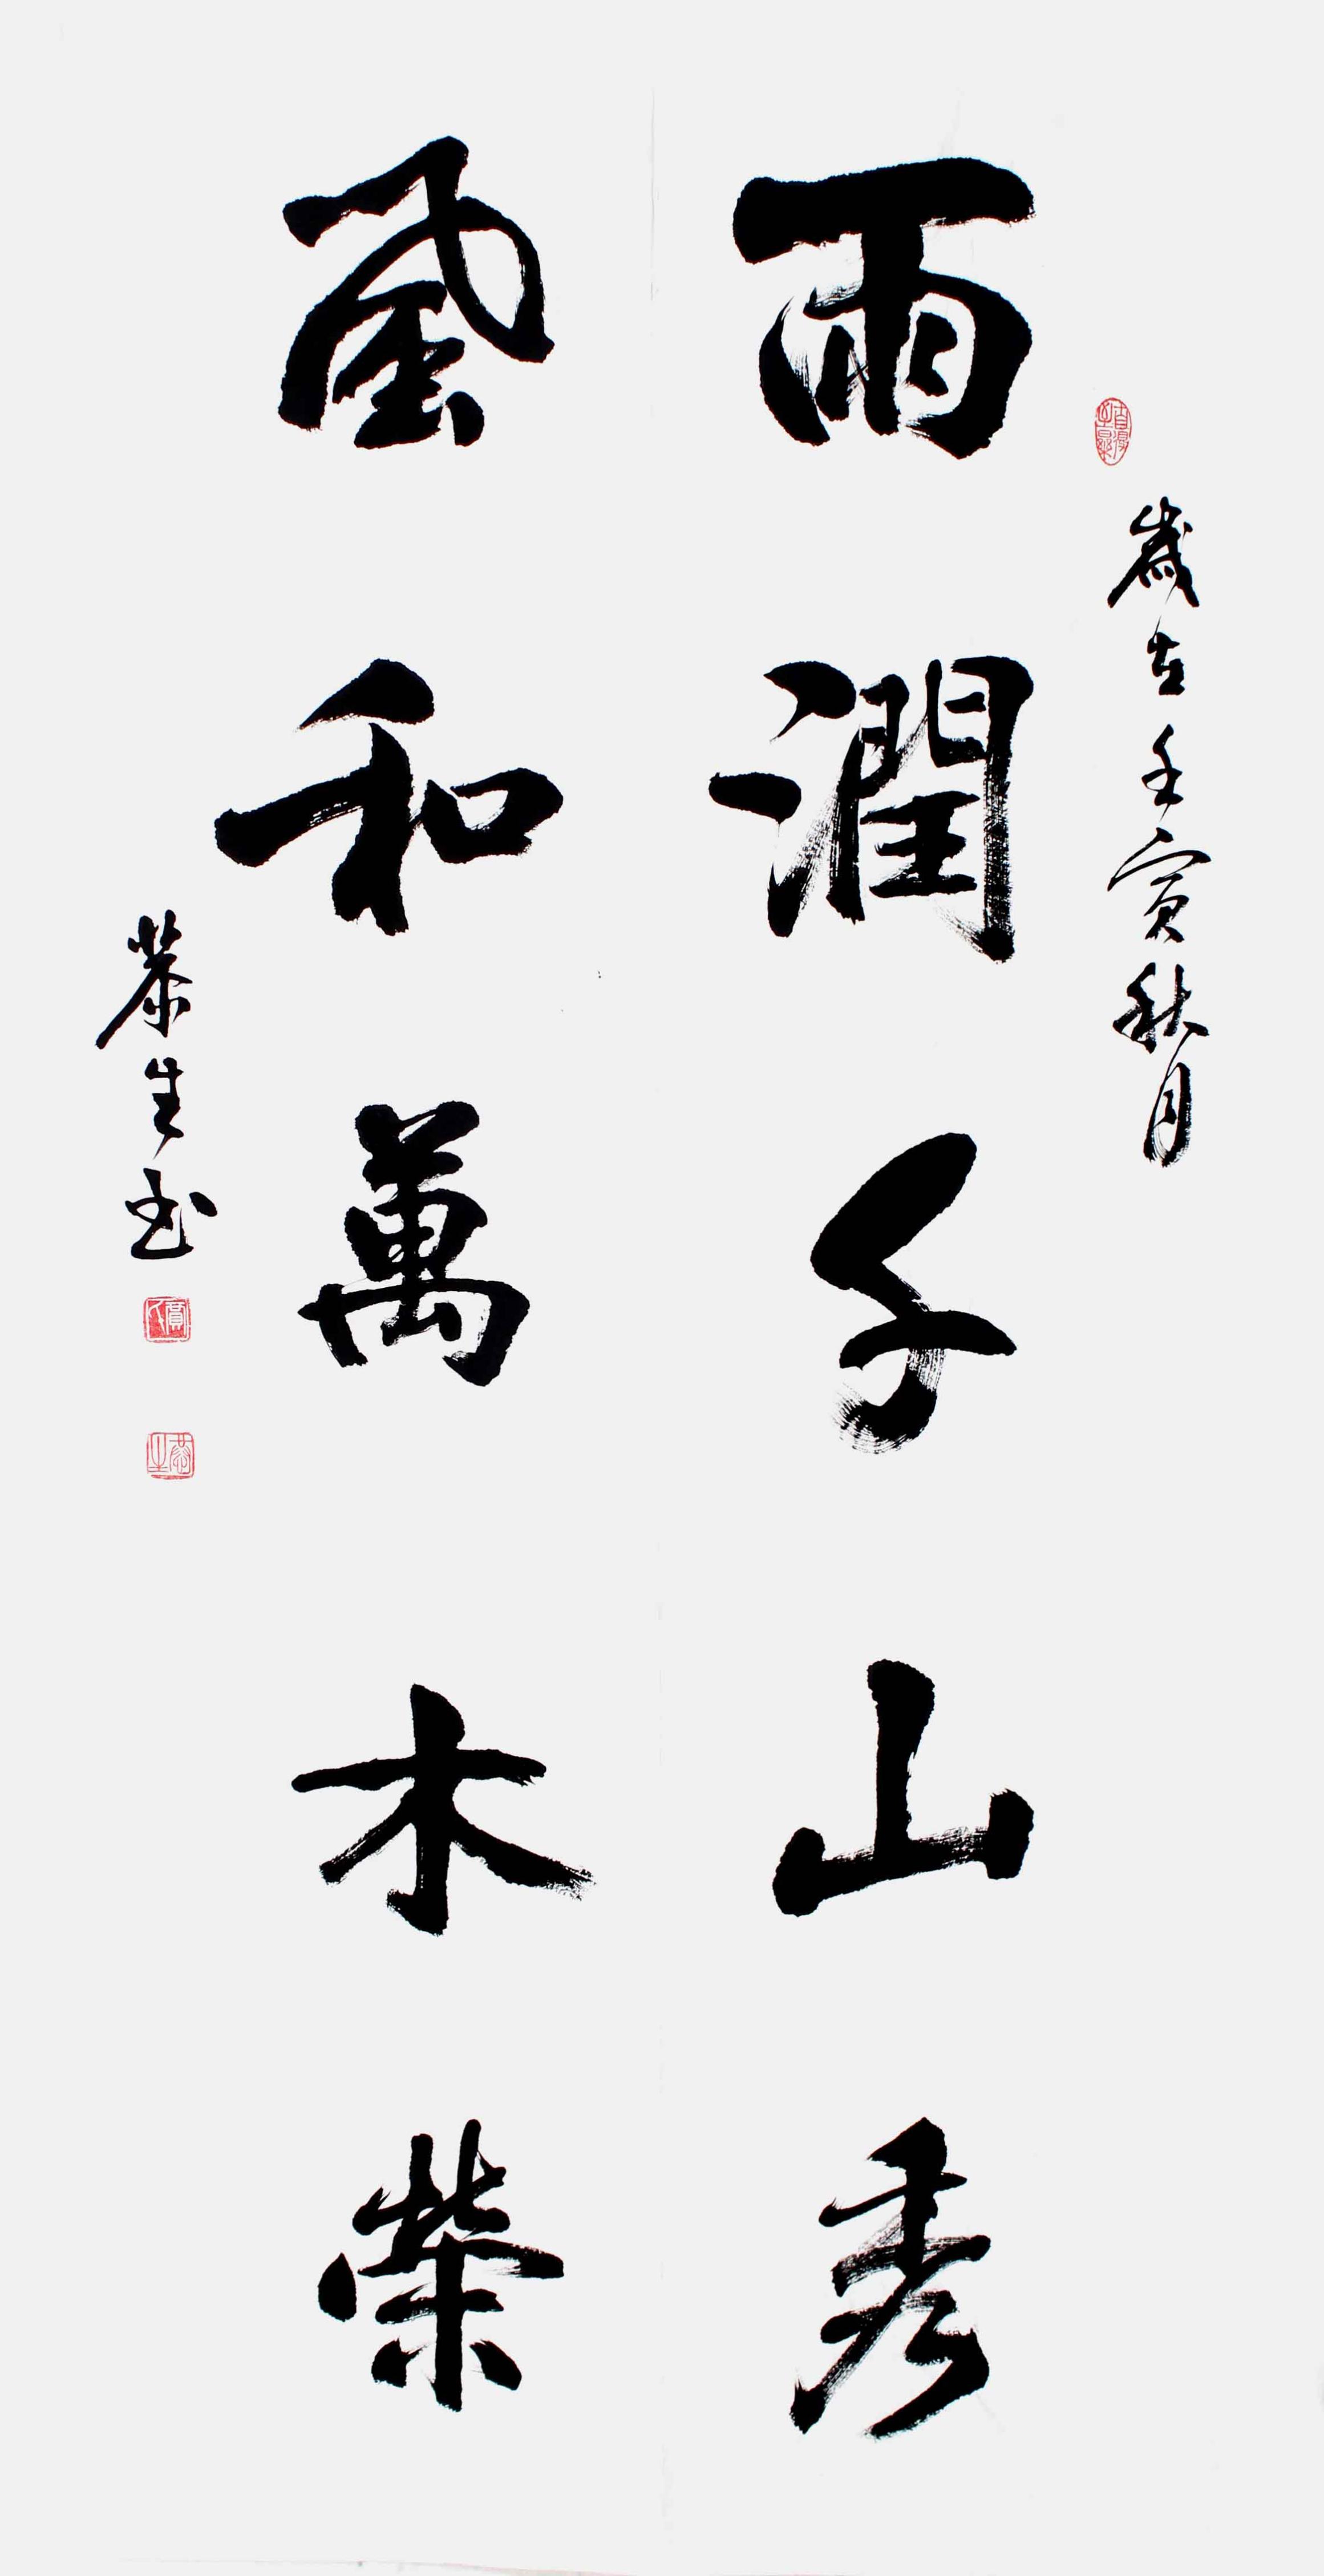 歲在壬寅秋月
雨潤千山秀
風和萬木榮
恭生書
恭生